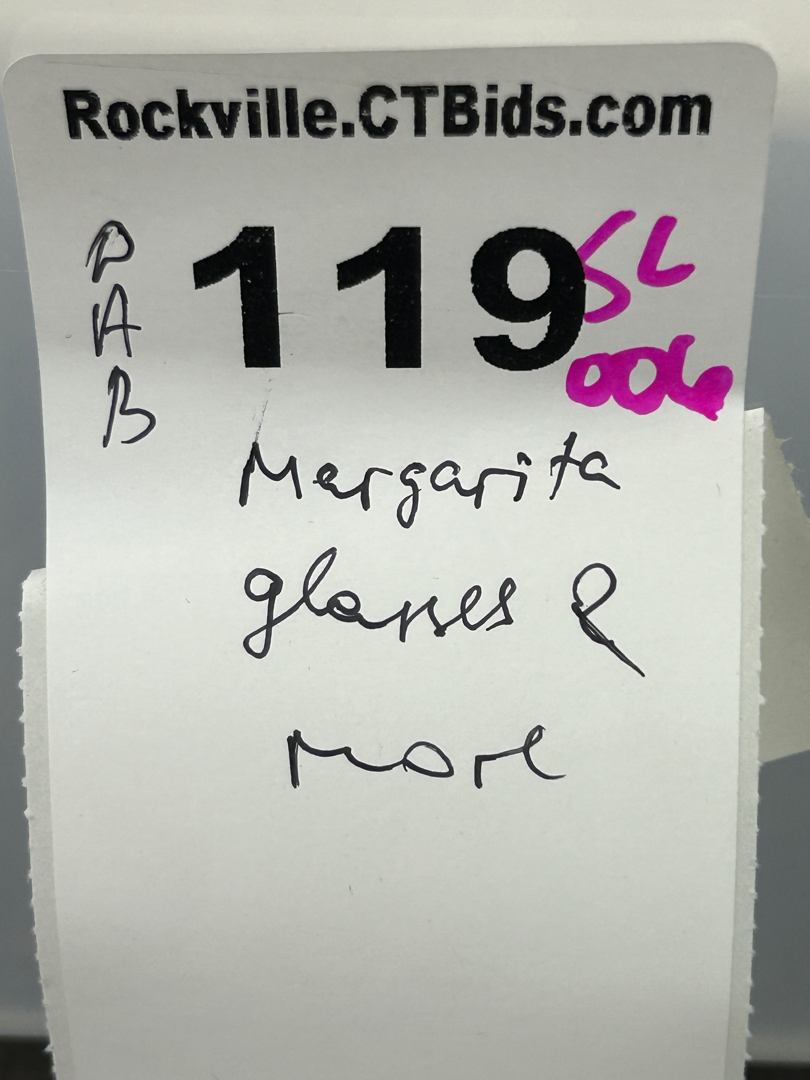 Rockville.CTBids.com
119
SL
006
P
A
B
Margarita
glasses &
more